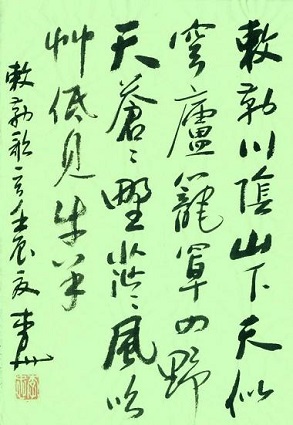 敕勒川陰山下天似
穹廬籠罩四野
天蒼〻野茫〻風吹
艸低見牛羊
敕勒歌 壬辰夏